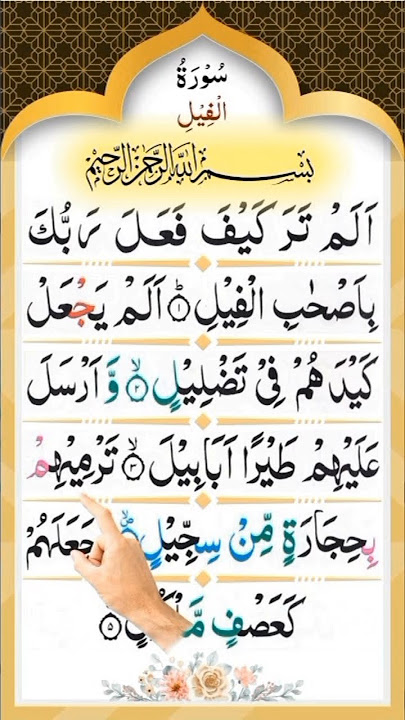 سُوْرَةُ
الْفِيْلِ
بِسْمِ اللّٰهِ الرَّحْمٰنِ الرَّحِيْمِ
اَلَمْ تَرَ كَيْفَ فَعَلَ رَبُّكَ
بِاَصْحٰبِ الْفِيْلِ ۝١ اَلَمْ يَجْعَلْ
كَيْدَهُمْ فِىْ تَضْلِيْلٍ ۝٢ وَّ اَرْسَلَ
عَلَيْهِمْ طَيْرًا اَبَابِيْلَ ۝٣ تَرْمِيْهِمْ
بِحِجَارَةٍ مِّنْ سِجِّيْلٍ جَعَلَهُمْ
كَعَصْفٍ ۝٥